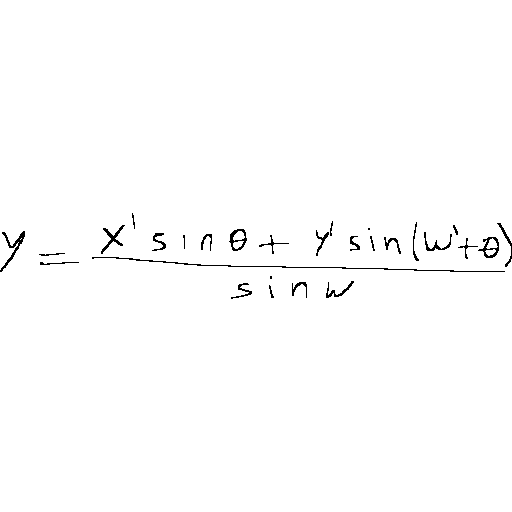 y = \frac{x' \sin\theta + y' \sin(w'+\theta)}{\sin w}